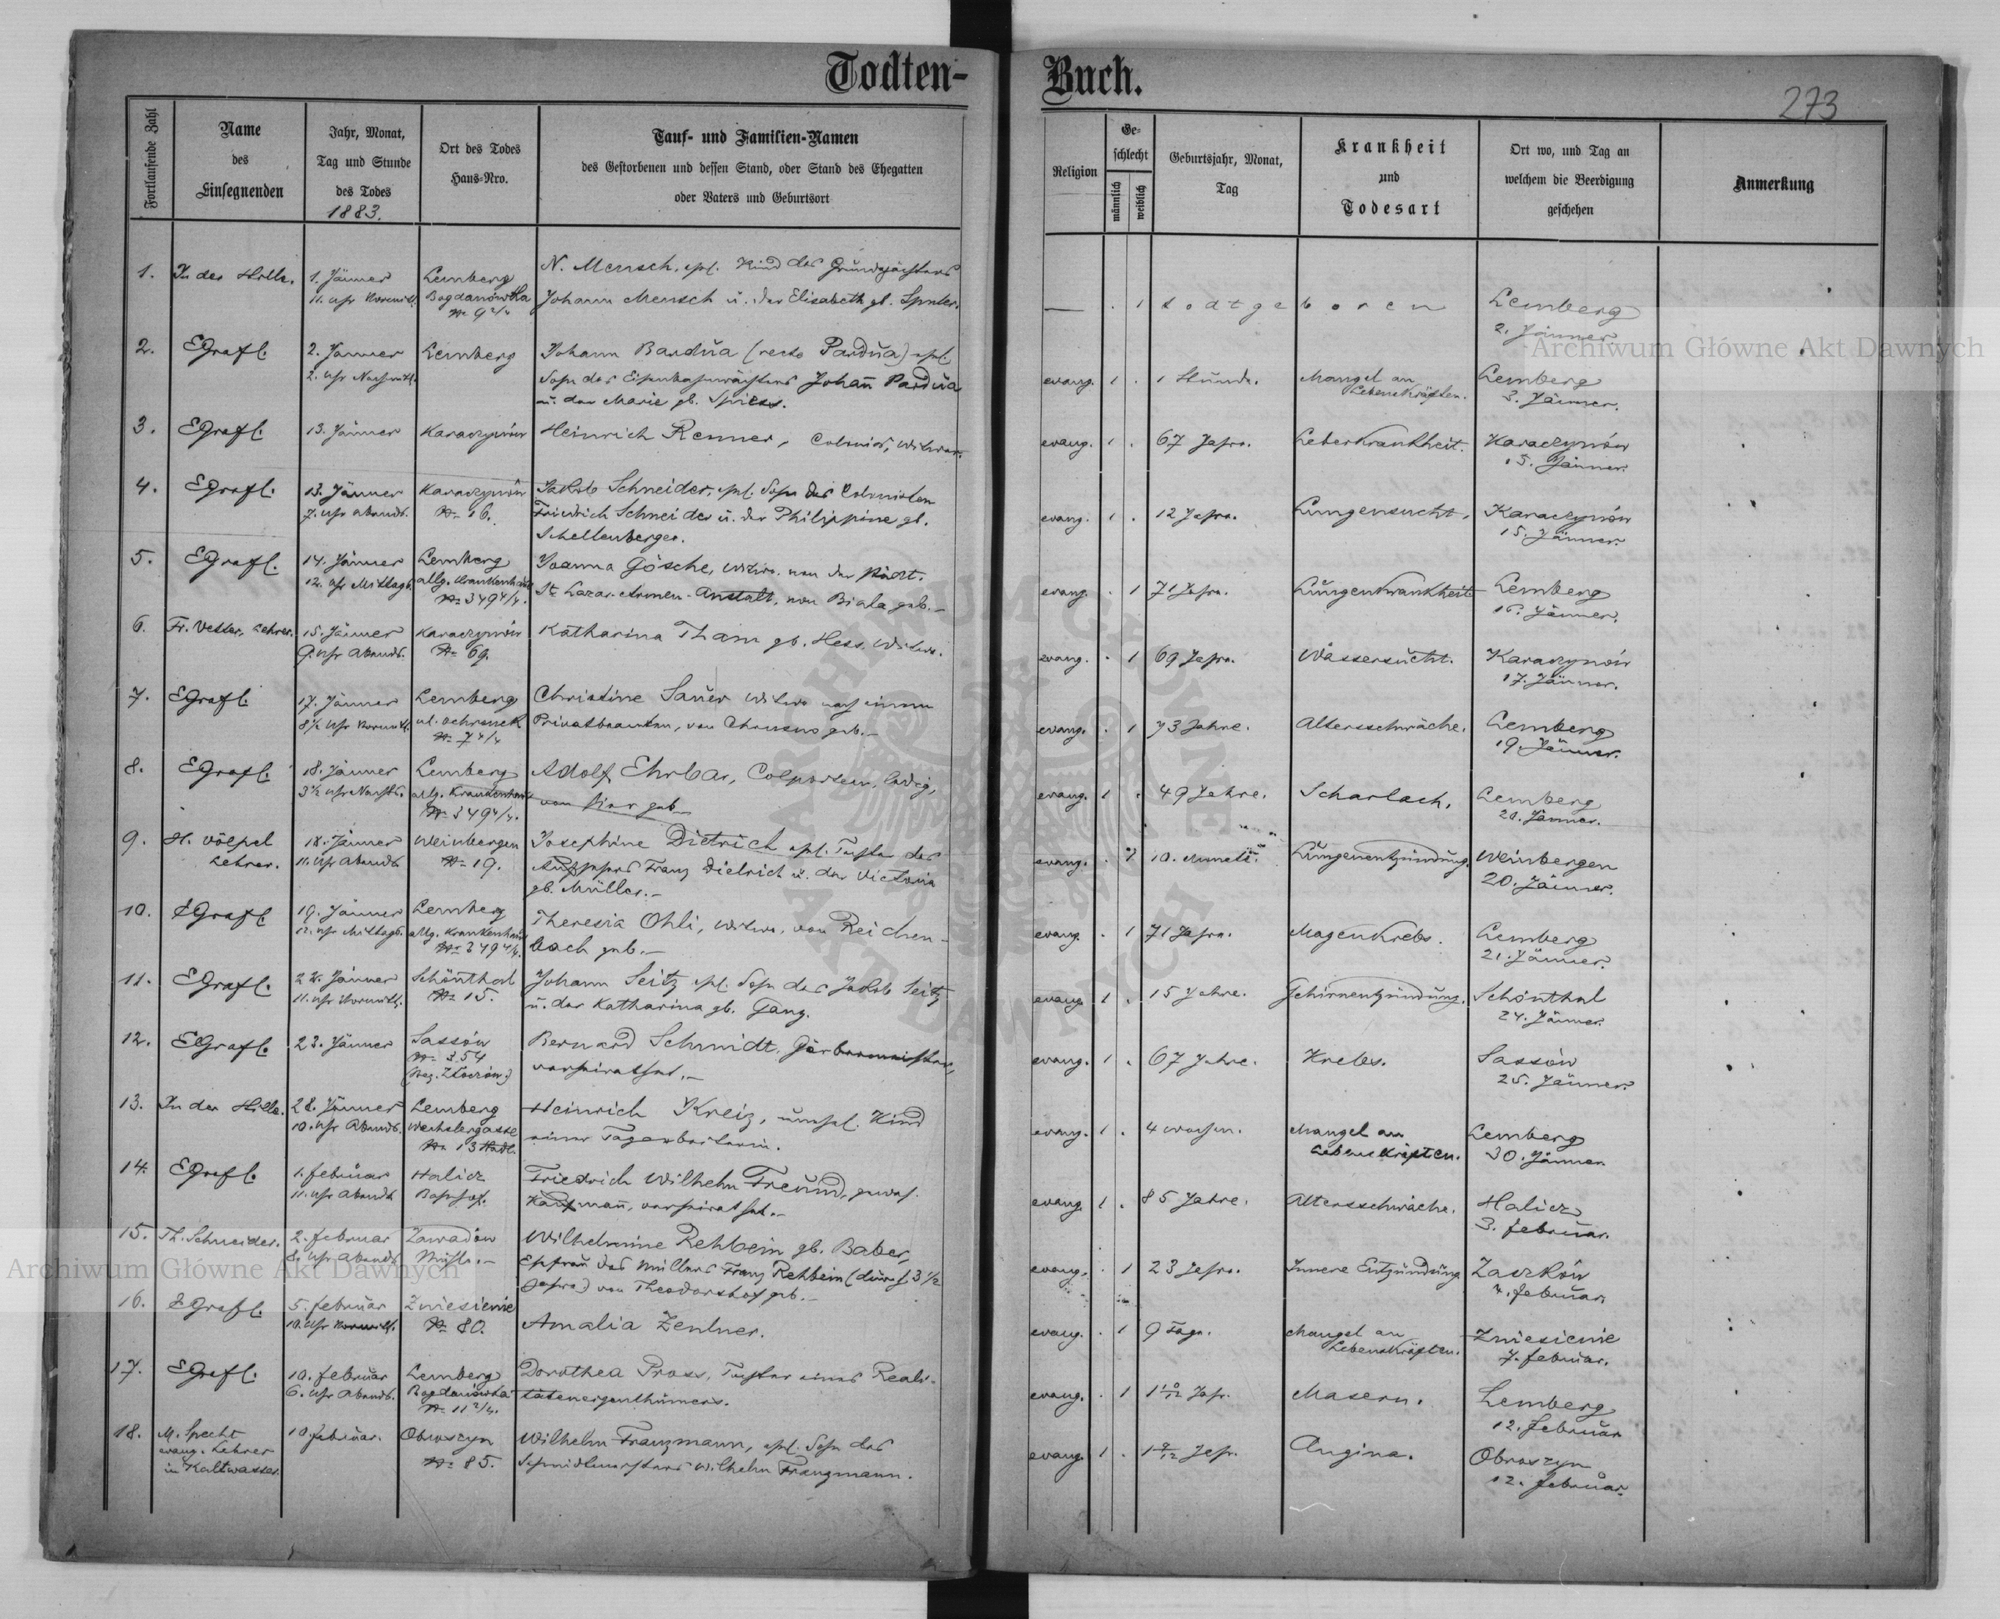 Todten-Buch.
273
Fortlaufende Zahl
Name des Einsegnenden
Jahr, Monat, Tag und Stunde des Todes
1883.
Ort des Todes Haus-Nro.
Tauf- und Familien-Namen
des Gestorbenen und dessen Stand, oder Stand des Ehegatten
oder Vaters und Geburtsort
Religion
Geschlecht
männlich
weiblich
Geburtsjahr, Monat, Tag
Krankheit und Todesart
Ort wo, und Tag an welchem die Beerdigung geschehen
Anmerkung
1. In der Stille. 1. Jänner Lemberg N. Mensch, ehl. Kind des Grundpächters
11. Uhr Vormitt. Bogdanówka No 9 2/4 Johann Mensch u. der Elisabeth gb.
— . 1 todtgeboren Lemberg
2. Jänner
2. EGrafl. 2. Jänner Lemberg Johann Bardua (recte Pardua) ehl.
2. Uhr Nachmitt. Sohn des Eisenbahnwächters Johann Pardua
u. der Marie gb. Spiess.
evang. 1 . 1 Stunde. Mangel an Lebenskräften. Lemberg
3. Jänner.
3. EGrafl. 13. Jänner Karaczynów Heinrich Renner, Colonist, Witwer.
evang. 1 . 67 Jahre. Leberkrankheit. Karaczynów
15. Jänner.
4. EGrafl. 13. Jänner Karaczynów Jakob Schneider, ehl. Sohn des Colonisten
7. Uhr Abends. No 16. Friedrich Schneider u. der Philippine gb.
Schellenberger.
evang. 1 . 12 Jahre. Lungensucht. Karaczynów
15. Jänner.
5. EGrafl. 14. Jänner Lemberg Joanna Gösche, Witwe. von der städt.
12. Uhr Mittags. allg. Krankenhaus No 349 4/4. St. Lazar-Armen-Anstalt, von Biala geb.—
evang. . 1 71 Jahre. Lungenkrankheit Lemberg
16. Jänner.
6. Fr. Vetter, Lehrer. 15. Jänner Karaczynów Katharina Tham gb. Hess, Witwe.
9. Uhr Abends. No 69.
evang. . 1 69 Jahre. Wassersucht. Karaczynów
17. Jänner.
7. EGrafl. 17. Jänner Lemberg Christine Sauer Witwe nach einem
8½ Uhr Vormitt. ul. Ochronek No 7 4/4 Privatbeamten, von geb.—
evang. . 1 73 Jahre. Altersschwäche. Lemberg
19. Jänner.
8. EGrafl. 18. Jänner Lemberg Adolf Ehrbar, Colporteur, ledig,
3½ Uhr Nachts. allg. Krankenhaus No 349 4/4. von geb.—
evang. 1 . 49 Jahre. Scharlach. Lemberg
20. Jänner.
9. H. Völpel Lehrer. 18. Jänner Weinbergen Josephine Dietrich ehl. Tochter des
11. Uhr Abends No 19. Franz Dietrich u. der Victoria
gb. Müller.—
evang. . 1 10. Monate. Lungenentzündung. Weinbergen
20. Jänner.
10. EGrafl 19. Jänner Lemberg Theresia Ohli, Witwe, von Reichen-
12. Uhr Mittags. allg. Krankenhaus No 349 4/4. bach geb.—
evang. . 1 71 Jahre. Magenkrebs. Lemberg
21. Jänner.
11. EGrafl. 22. Jänner Schönthal Johann Seitz ehl. Sohn des Jakob Seitz
11. Uhr Vormitt. No 15. u. der Katharina gb. Gang.
evang. 1 . 15 Jahre. Gehirnentzündung. Schönthal
24. Jänner.
12. EGrafl. 23. Jänner Sassów Bernard Schmidt, Gerbermeister,
No 354 (Bez. Złoczów.) verheirathet.—
evang. 1 . 67 Jahre. Krebs. Sassów
25. Jänner.
13. In der Stille. 28. Jänner Lemberg Heinrich Kreiz, unehl. Kind
10. Uhr Abends. Wechslergasse No 13 Stadt. einer Tagarbeiterin.
evang. 1 . 4 Wochen. Mangel an Lebenskräften. Lemberg
30. Jänner
14. EGrafl. 1. Februar Halicz Friedrich Wilhelm Freund, gewes.
11. Uhr Abends Bahnhof. Kaufmann, verheirathet.—
evang. 1 . 85 Jahre. Altersschwäche. Halicz
3. Februar.
15. Th. Schneider. 2. Februar Zawadów Wilhelmine Rehbein gb. Baber,
8. Uhr Abends Mühle.— Ehefrau des Müllers Franz Rehbein (durch 3½
Jahre) von Theodorshof geb.—
evang. . 1 23 Jahre. Innere Entzündung Zaszków
4. Februar.
16. EGrafl. 5. Februar Zniesienie Amalia Zentner.
10. Uhr Vormitt. No 80.
evang. . 1 9 Tage. Mangel an Lebenskräften. Zniesienie
7. Februar.
17. EGrafl. 10. Februar Lemberg Dorothea Pross, Tochter eines Reali-
6. Uhr Abends. Bogdanówka No 11 2/4. tätenergenthümers.
evang. . 1 Jahr. Masern. Lemberg
12. Februar
18. M. Specht evang. Lehrer in Kaltwasser. 10. Februar. Obroszyn Wilhelm Franzmann, ehl. Sohn des
No 85. Schmidmeisters Wilhelm Franzmann.
evang. 1 . Jahr. Angina. Obroszyn
12. Februar.
Archiwum Główne Akt Dawnych
Archiwum Główne Akt Dawnych
ARCHIWUM GŁÓWNE AKT DAWNYCH